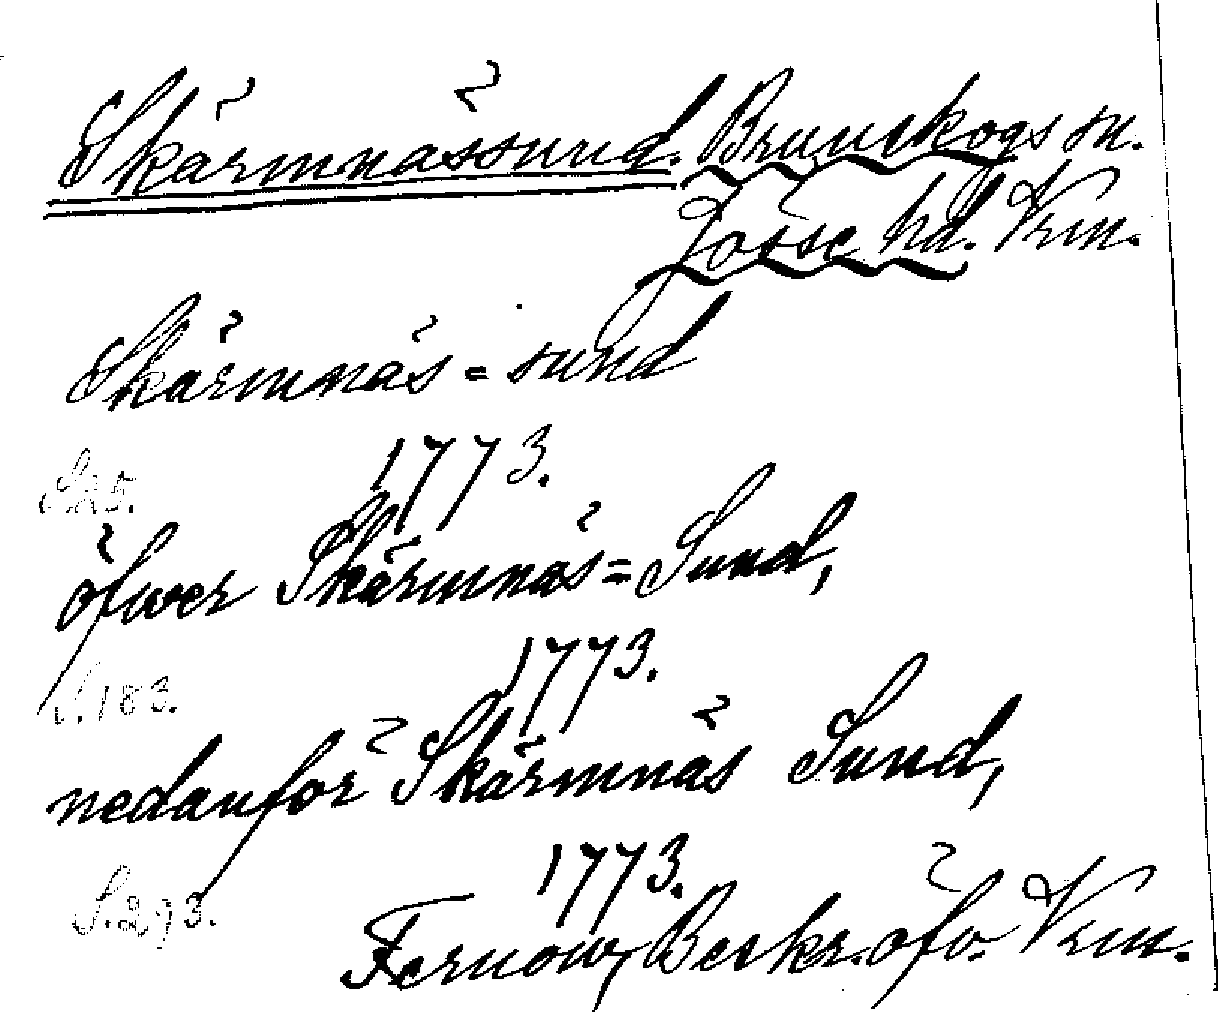 Skärmnässund. Brunskogs sn.
Jösse hd. Vrm.
Skärmnäs = sund
1773.
S. 25.
öfwer Skärmnäs = Sund,
1773.
S. 183.
nedanför Skärmnäs Sund,
1773.
S. 293.
Fernow, Beskr. öfv. Vrm.